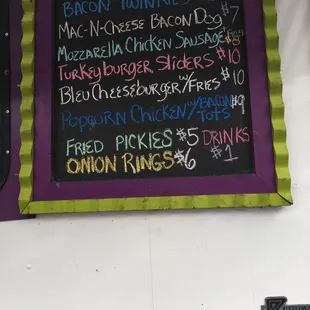 BACON TWINKIES
MAC-N-CHEESE BACON DOG $7
MOZZARELLA CHICKEN SAUSAGE $8
TURKEYBURGER SLIDERS $10
BLEU CHEESEBURGER W/FRIES $10
POPCORN CHICKEN W/BACON $9
TOTS
FRIED PICKLES $5 DRINKS
ONION RINGS $6 $1